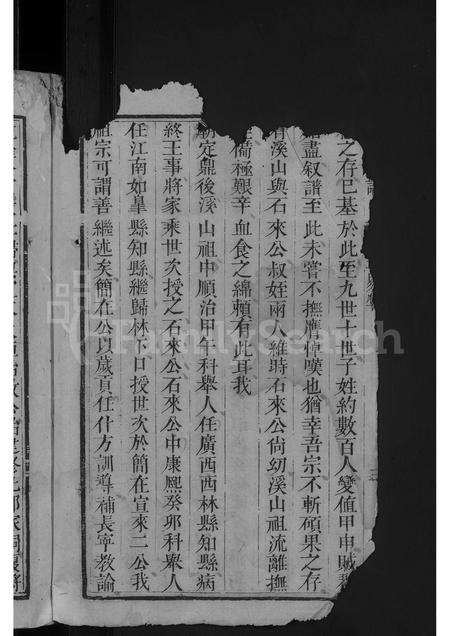 之存已基於此至九世十世子姓約數百人變值甲申賊
盡叙譜至此未嘗不撫膺悼嘆也猶幸吾宗不斬碩果之存
有溪山與石來公叔姪兩人維時石來公尙幼溪山祖流離撫
備極艱辛血食之綿賴有此耳我
朝定鼎後溪山祖中順治甲午科舉人任廣西西林縣知縣病
終王事將家乘世次授之石來公石來公中康熙癸卯科舉人
任江南如臯縣知縣繼歸林下口授世次於簡在宣來二公我
祖宗可謂善繼述矣簡在公以歲貢任什方訓導補長寧教諭
FamilySearch